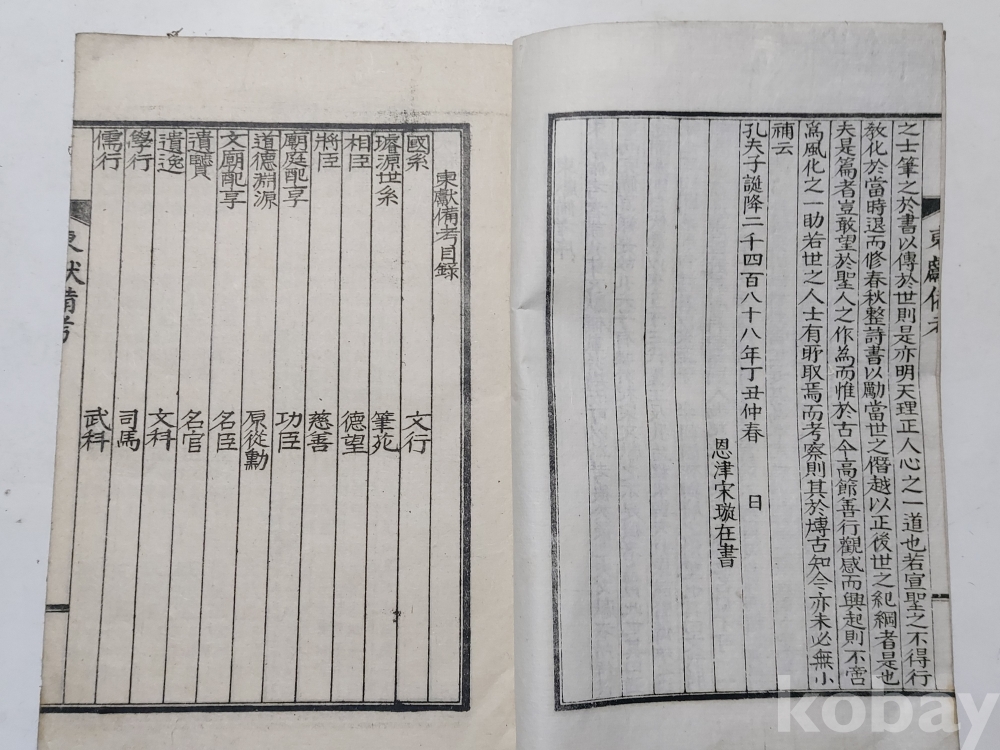 之士筆之於書以傳於世則是亦明天理正人心之一道也若宣聖之不得行
敎化於當時退而修春秋整詩書以勵當世之僭越以正後世之紀綱者是也
夫是篇者豈敢望於聖人之作爲而惟於古今高節善行觀感而興起則不啻
爲風化之一助若世之人士有所取焉而考察則其於博古知今亦未必無小
補云
孔夫子誕降二千四百八十八年丁丑仲春 日
恩津宋璇在書
東獻備考目錄
國系 文行
璿源世系 筆苑
相臣 德望
將臣 慈善
廟庭配享 功臣
道德淵源 原從勳
文廟配享 名臣
遺賢 名官
遺逸 文科
學行 司馬
儒行 武科
東獻備考
kobay